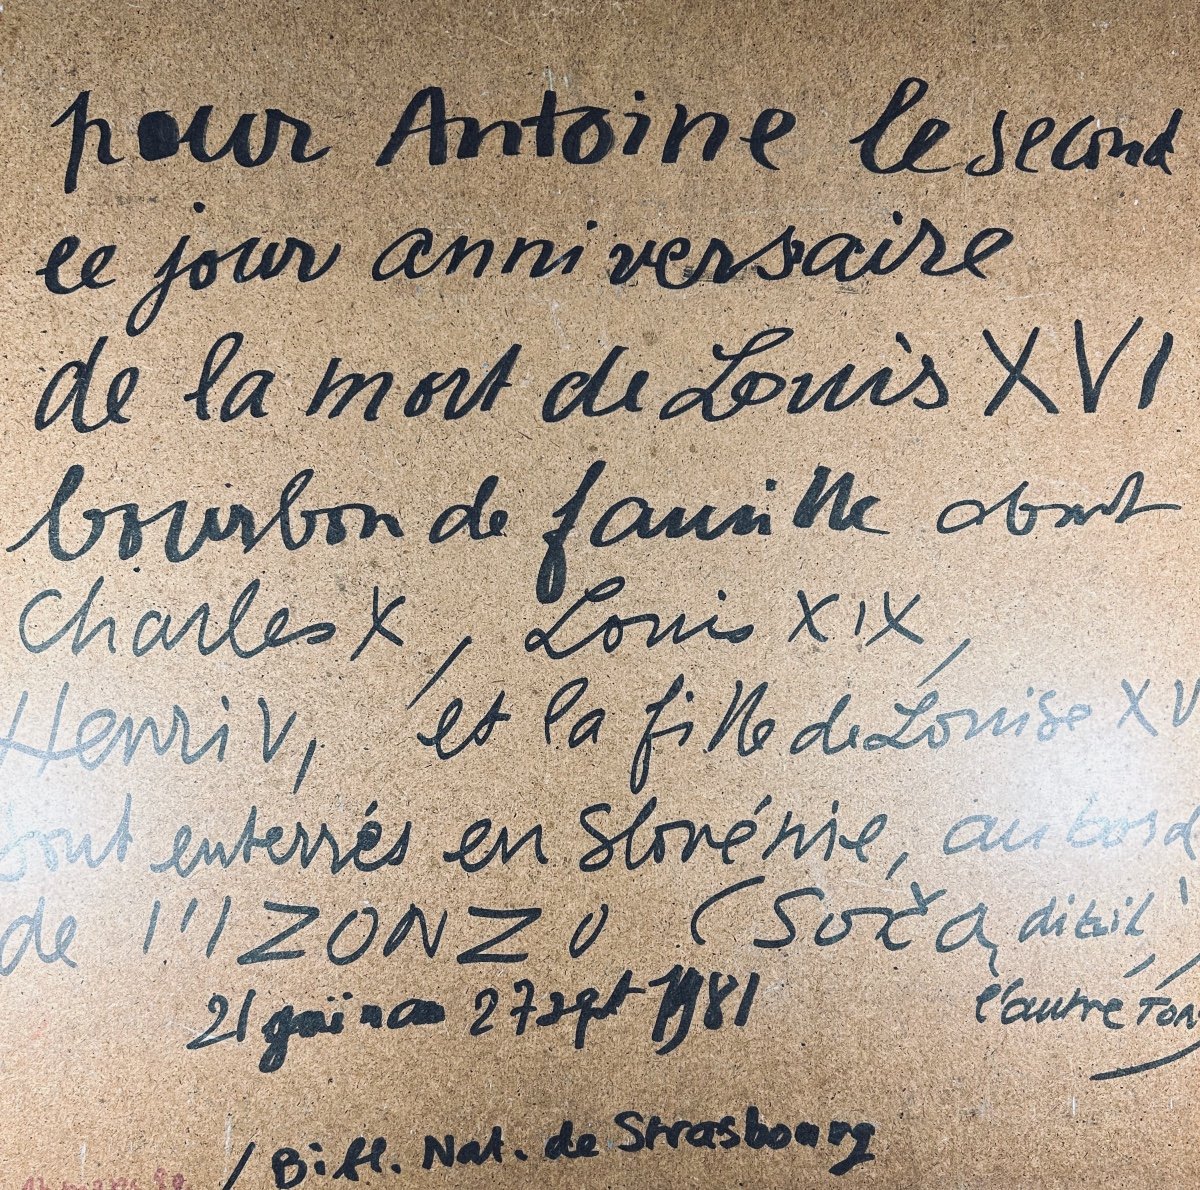 pour Antoine le second
ce jour anniversaire
de la mort de Louis XVI
bourbon de famille dont
Charles X, Louis XIX,
Henri V, et la fille de Louise XV
sont enterrés en Slovénie, au bord
de l'IZONZO (Soča, dit-il,
21 juin 27 sept 1981 l'autre Ton
/ Bibl. Nat. de Strasbourg